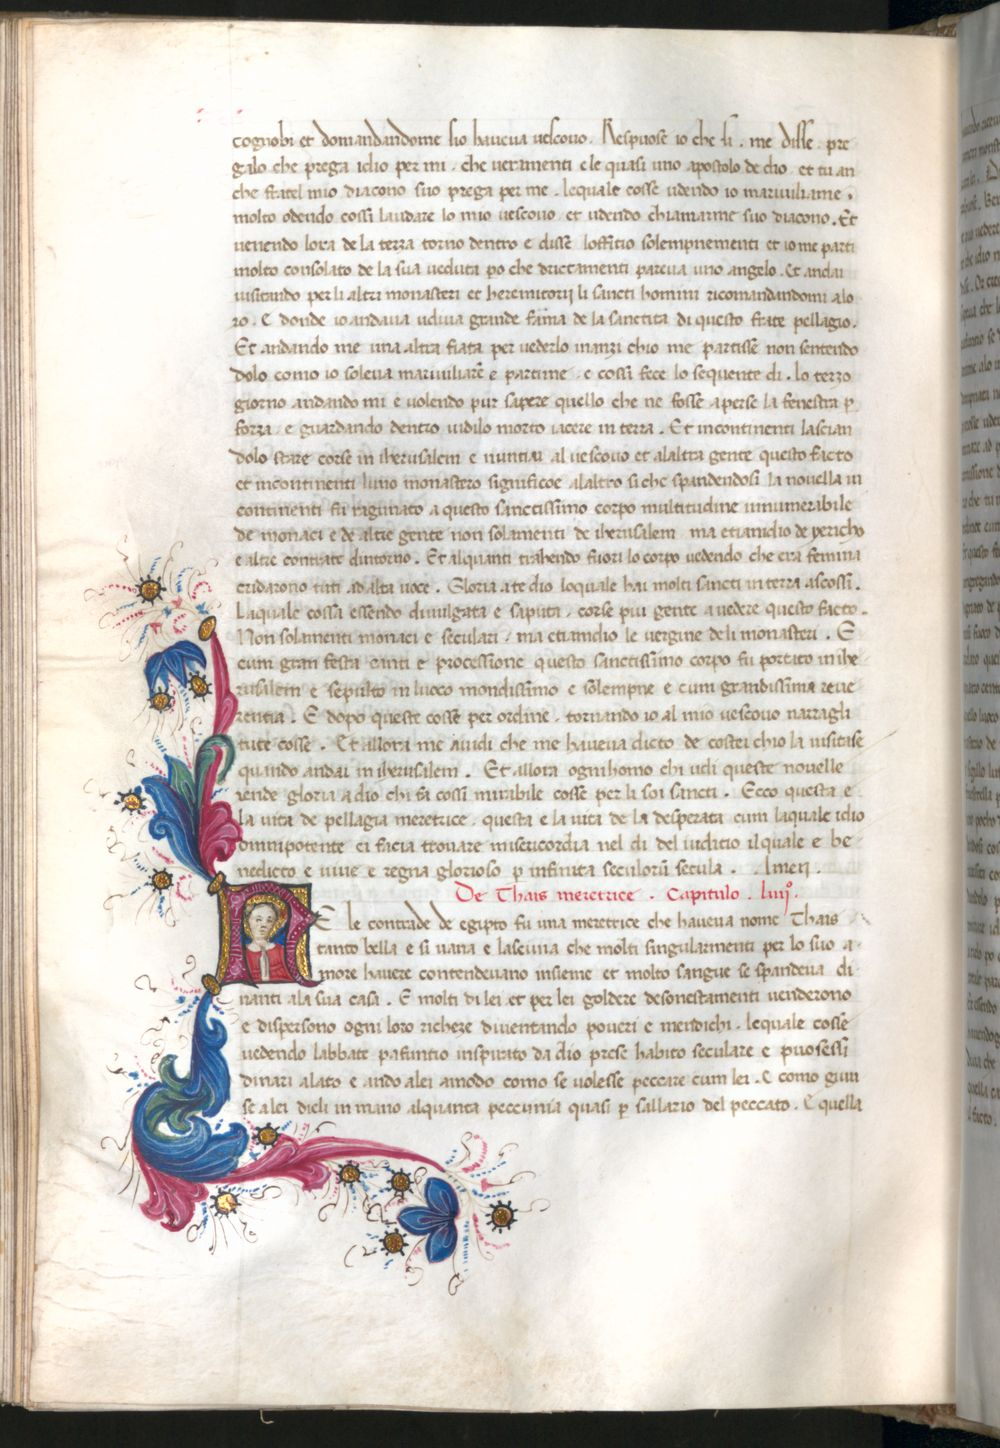 cognobi et domandandome sio haveva vescovo. Respuose io che si. me disse. pre
galo che prega idio per mi. che veramenti e le quasi uno apostolo de dio. et tu an
che fratel mio diacono suo prega per me. lequale cosse udendo io maraviliame.
molto odendo cossi laudare lo mio vescovo. et udendo chiamarme suo diacono. Et
venendo lora de la terza torno dentro e disse loffitio solempnementi et io me parti
molto consolato de la sua veduta po che drictamenti pareva uno angelo. Et andai
visitando per li altri monasteri et heremitorij li sancti homini ricomandandomi alo
ro. E donde io andava udiva grande fama de la sanctita di questo frate pellagio.
Et andando me una altra fiata per vederlo inanzi chio me partisse non sentendo
dolo como io soleva maraviliare e partime. e cossi fece lo sequente di. lo terzo
giorno andando mi e volendo pur sapere quello che ne fosse aperse la fenestra p
forza. e guardando dentro vidilo morto iacere in terra. Et incontinenti lascian
dolo stare corse in iherusalem e nuntiai al vescovo et alaltra gente questo facto
et incontinenti luno monastero significoe alaltro si che spandendosi la novella in
continenti fu ragunato a questo sanctissimo corpo multitudine innumerabile
de monaci e de altre gente non solamenti de iherusalem ma etiamdio de yericho
e altre contrate dintorno. Et alquanti trahendo fuori lo corpo vedendo che era femina
cridarono tuti ad alta voce. Gloria a te dio loquale hai molti sancti in terra ascossi.
Laquale cossa essendo divulgata e saputa. corse piu gente a vedere questo facto.
Non solamenti monaci e seculari / ma etiamdio le vergine de li monasteri. E
cum gran festa canti e processione questo sanctissimo corpo fu portato in ihe
rusalem e sepulto in luoco mondissimo e solempne e cum grandissima reve
rentia. E dopo queste cosse per ordine. tornando io al mio vescovo narragli
tute cosse. Et allora me avidi che me haveva dicto de costei chio la visitase
quando andai in iherusalem. Et allora ognihomo chi udi queste novelle
rende gloria a dio chi fa cossi mirabile cosse per li soi sancti. Ecco questa e
la vita de pellagia meretrice. questa e la vita de la desperata cum laquale idio
omnipotente ci facia trovare misericordia nel di del iudicio il quale e be
nedicto e vive e regna glorioso p infinita seculorũ secula. Amen.
De Thais meretrice. Capitulo. luij°.
E le contrade de egipto fu una meretrice che haveva nome Thais
tanto bella e si vana e lasciva che molti singularmenti per lo suo a-
more havere contendevano insieme et molto sangue se spandeva di
nanti ala sua casa. E molti di lei et per lei goldere desonestamenti venderono
e dispersono ogni loro richeze diventando poveri e mendichi. lequale cosse
vedendo labbate pafuntio inspirato da dio prese habito seculare e puosessi
dinari alato e ando alei amodo como se volesse peccare cum lei. E como giun
se alei dieli in mano alquanta peccunia quasi p sallario del peccato. E quella